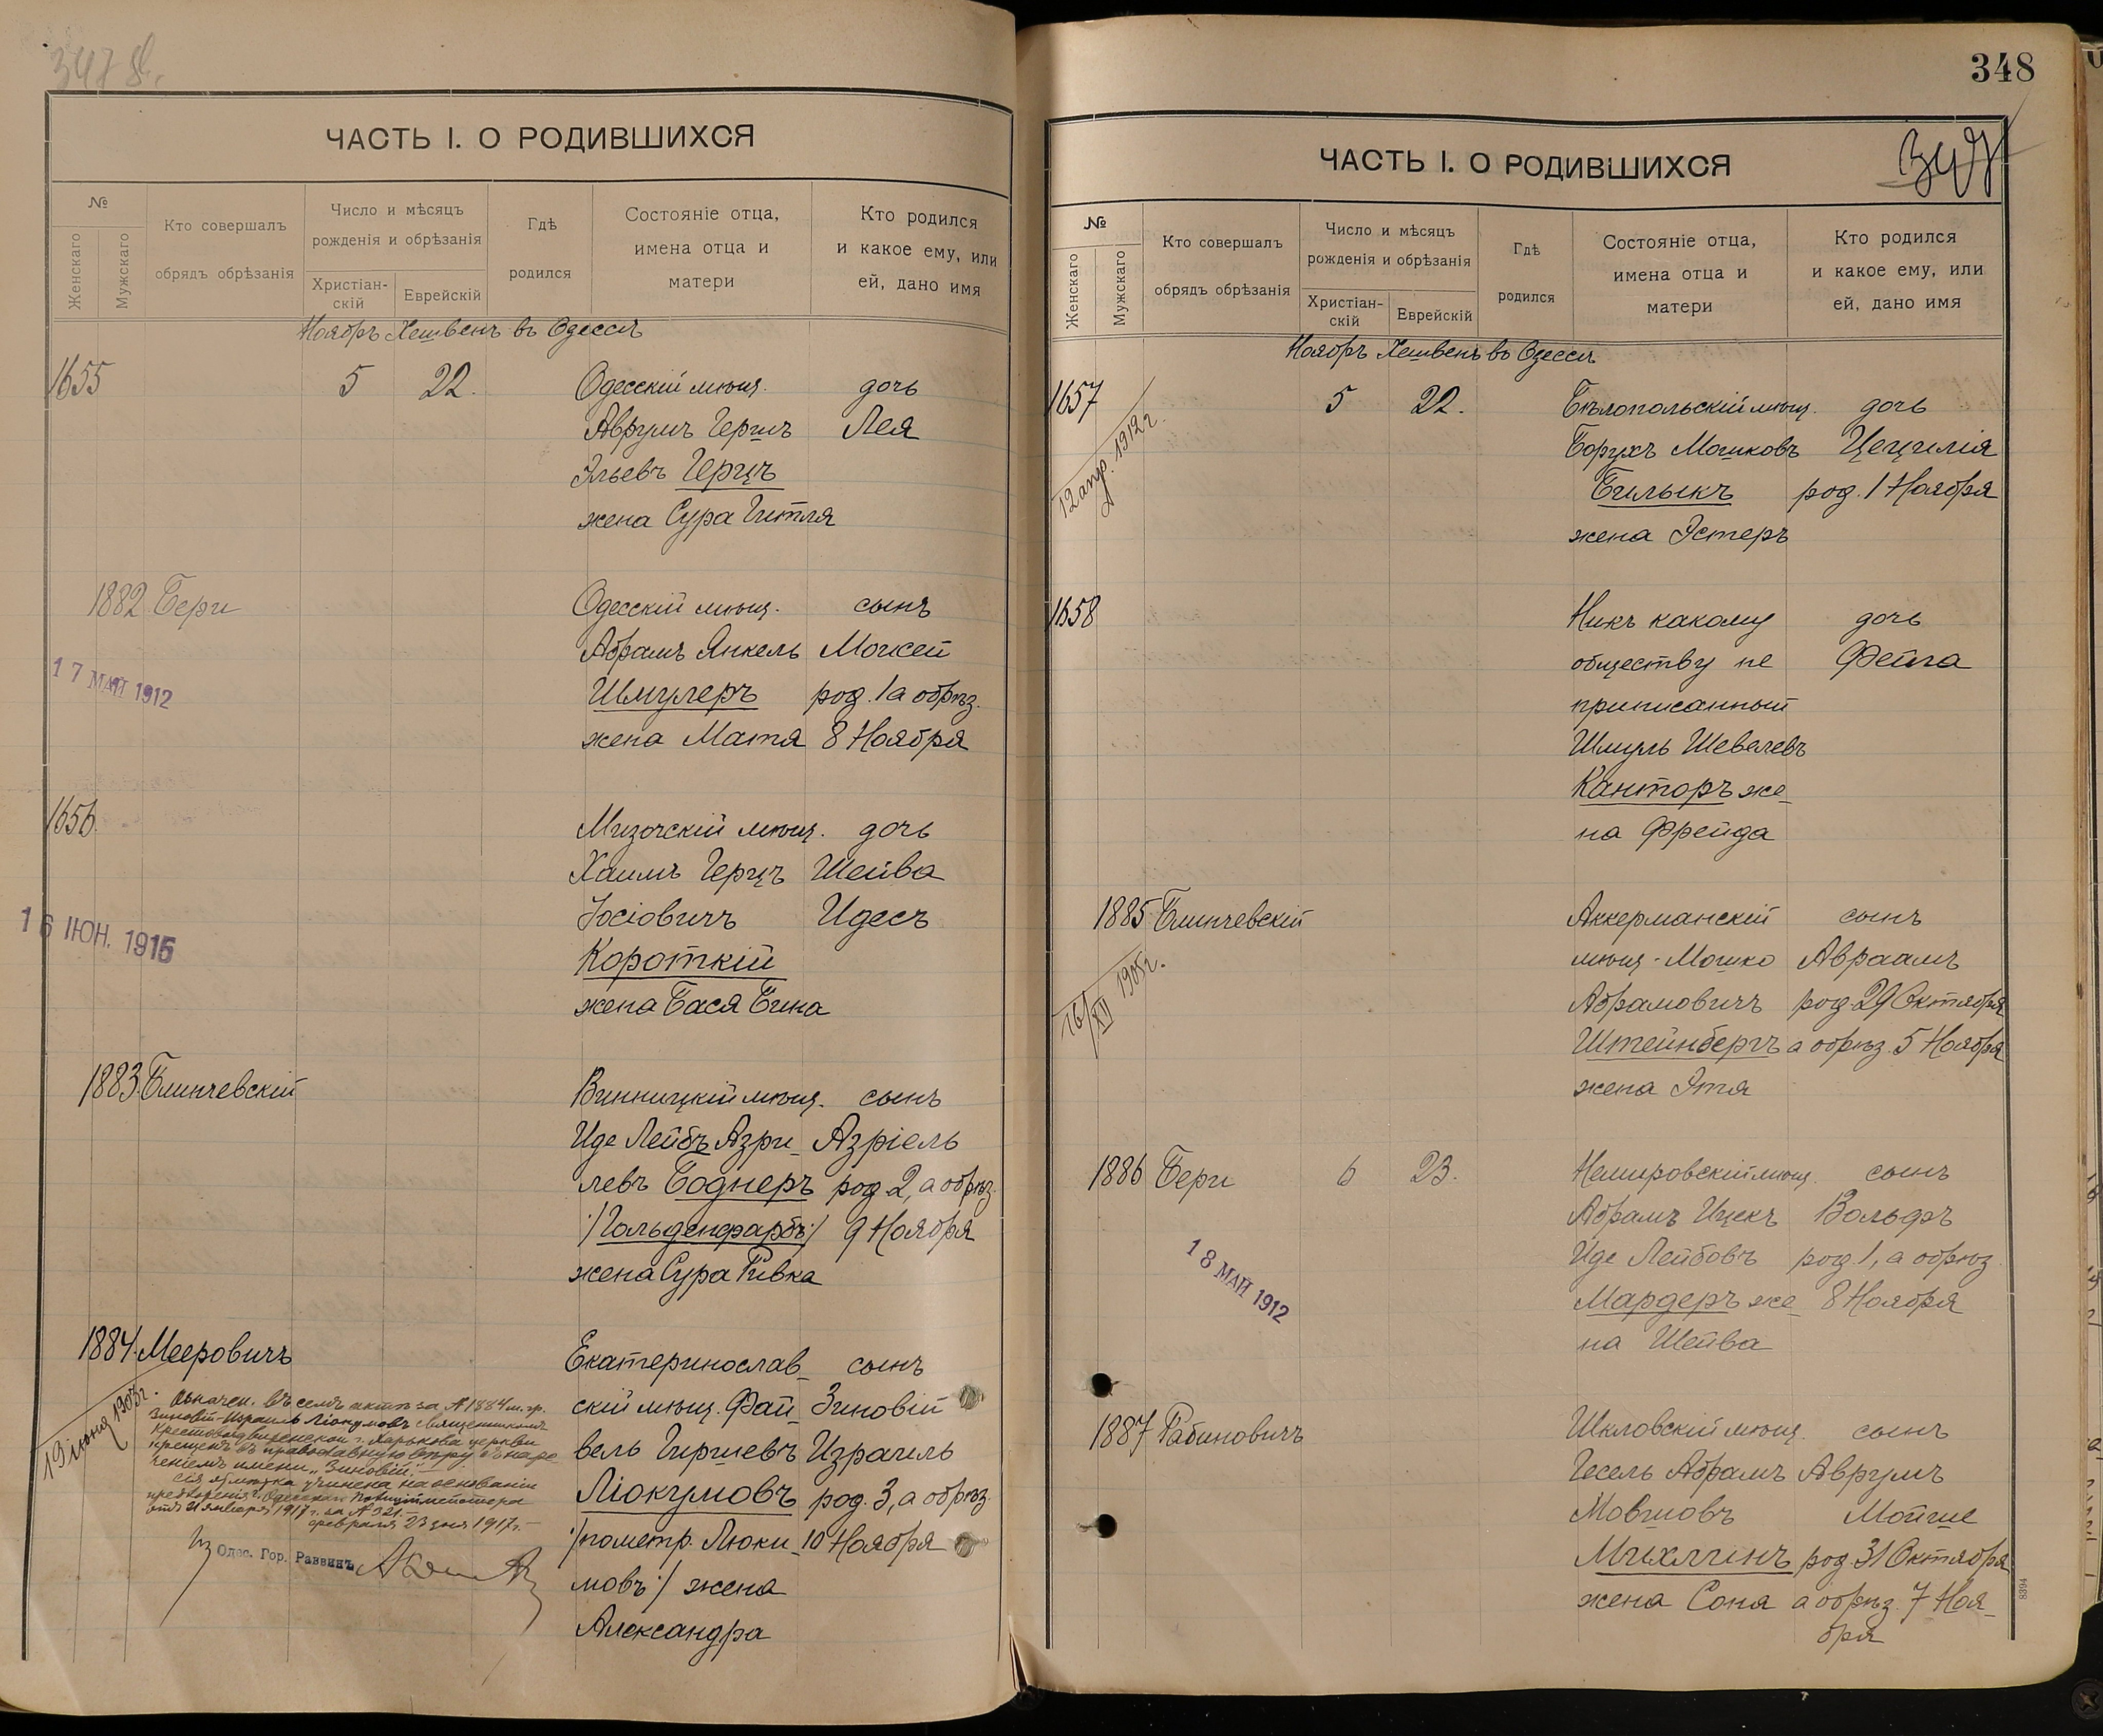 ЧАСТЬ I. О РОДИВШИХСЯ
№
Женскаго
Мужскаго
Кто совершалъ
обрядъ обрѣзанія
Число и мѣсяцъ
рожденія и обрѣзанія
Христіан-
скій
Еврейскій
Гдѣ
родился
Состояніе отца,
имена отца и
матери
Кто родился
и какое ему, или
ей, дано имя
Ноябрь Хешвенъ въ Одессѣ
1655 5 22. Одесскій мѣщ. дочь
Аврумъ Гершъ Лея
Эльевъ Герцъ
жена Сура Гитля
1882 Бери Одесскій мѣщ. сынъ
Абрамъ Янкель Моисей
17 МАЙ 1912
Шмулеръ род. 1 а обрѣз.
жена Матя 8 Ноября
1656 Мизочскій мѣщ. дочь
Хаимъ Герцъ Шейва
Іосіовичъ Идесъ
16 ІЮН. 1915
Короткій
жена Бася Бина
1883 Блинчевскій Винницкій мѣщ. сынъ
Иде Лейбъ Азри- Азріель
левъ Боднеръ род 2, а обрѣз.
/Гольденфарбъ/ 9 Ноября
жена Сура Ривка
1884 Мееровичъ Екатеринослав- сынъ
скій мѣщ. Фай- Зиновій
вель Гиршевъ Израиль
Ліокумовъ род. 3, а обрѣз.
/по метр. Люки- 10 Ноября
мовъ/ жена
Александра
19 іюня 1903 г.
Означен. въ семъ актѣ за № 1884 м. гр.
Зиновій-Израиль Ліокумовъ священникомъ
Крестовоздвиженской г. Харькова церкви
крещенъ въ православную вѣру съ наре-
ченіемъ имени "Зиновій".
Сія отмѣтка учинена на основаніи
предложенія Одесскаго Полицiймейстера
отъ 21 января 1917 г. за № 321.
февраля 23 дня 1917 г.
Одес. Гор. Раввинъ
348
ЧАСТЬ I. О РОДИВШИХСЯ
№
Женскаго
Мужскаго
Кто совершалъ
обрядъ обрѣзанія
Число и мѣсяцъ
рожденія и обрѣзанія
Христіан-
скій
Еврейскій
Гдѣ
родился
Состояніе отца,
имена отца и
матери
Кто родился
и какое ему, или
ей, дано имя
Ноябрь Хешвенъ въ Одессѣ
1657 5 22. Бѣлопольскій мѣщ. дочь
Борухъ Мошковъ Цецилія
12 апр. 1912 г.
Билыкъ род. 1 Ноября
жена Эстеръ
1658 Никъ какому дочь
обществу не Фейга
приписанный
Шмуль Шевелевъ
Канторъ же-
на Фрейда
1885 Блинчевскій Аккерманскій сынъ
мѣщ. Мошко Авраамъ
16/XII 1905 г.
Абрамовичъ род. 29 Октября
Штейнбергъ а обрѣз. 5 Ноября
жена Этя
1886 Бери 6 23. Немировскій мѣщ. сынъ
Абрамъ Ицекъ Вольфъ
Иде Лейбовъ род. 1, а обрѣз
18 МАЙ 1912
Мардеръ же- 8 Ноября
на Шейва
1887 Рабиновичъ Шкловскій мѣщ. сынъ
Гесель Абрамъ Аврумъ
Мовшовъ Мойше
Михлинъ род. 31 Октября
жена Соня а обрѣз. 7 Ноя-
бря
8394